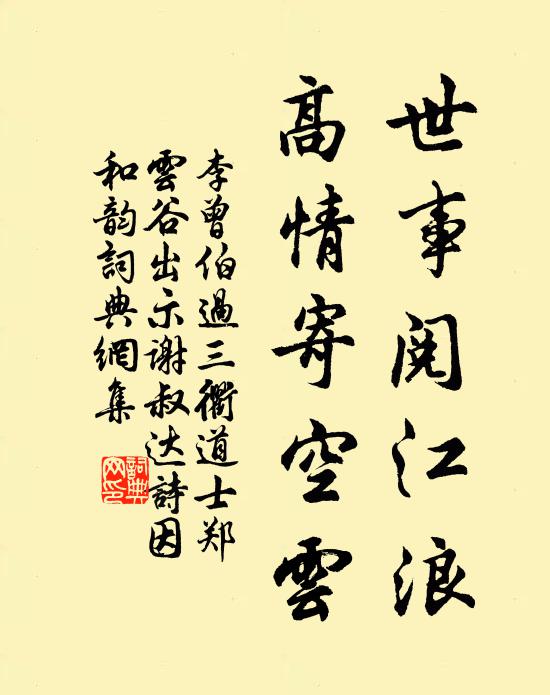 世事阅江浪
高情寄空雲
李曾伯過三衢道士郑
雲谷出示谢叔达詩因
和韵詞典網集
詞典